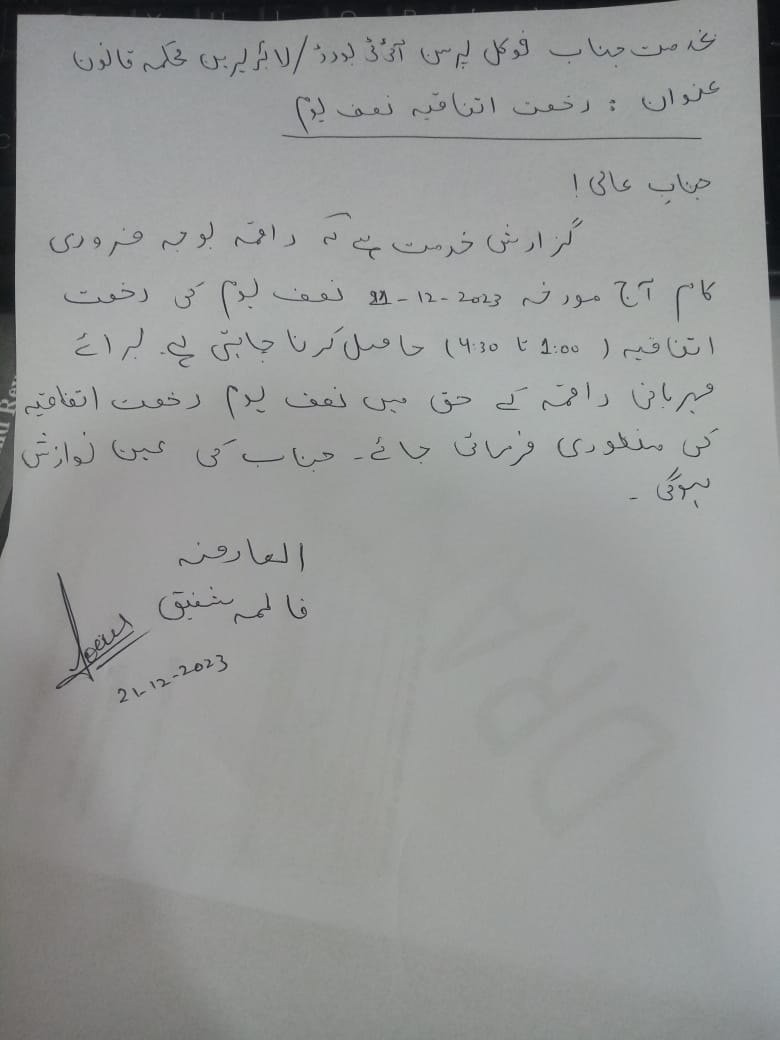 بخدمت جناب فوکل پرسن آئی ٹی بورڈ/لائبریرین محکمہ قانون
عنوان : رخصت اتفاقیہ نصف یوم
جناب عالی!
گزارش خدمت ہے کہ راقمہ بوجہ ضروری
کام آج مورخہ 21-12-2023 نصف یوم کی رخصت
اتفاقیہ (1:00 تا 4:30) حاصل کرنا چاہتی ہے۔ برائے
مہربانی راقمہ کے حق میں نصف یوم رخصت اتفاقیہ
کی منظوری فرمائی جائے۔ جناب کی عین نوازش
ہوگی۔
العارضہ
فاطمہ شفیق
21-12-2023
DRA